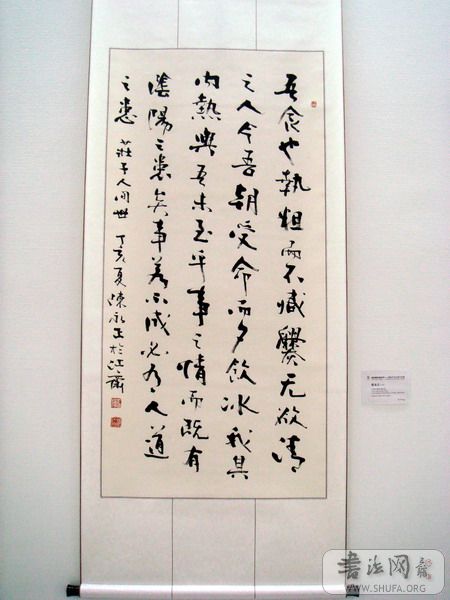 吾食也執粗而不臧爨无欲清
之人今吾朝受命而夕飲冰我其
內熱與吾未至乎事之情而既有
陰陽之患矣事若不成必有人道
之患 莊子人間世 丁亥夏陳永正於沚齋
書法网
WWW.SHUFA.ORG